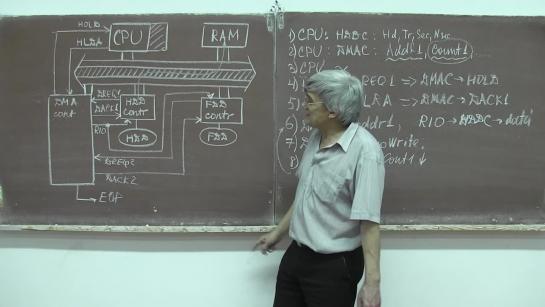 HOLD
HLDA
CPU
RAM
DMA
cont
DREQ1
DACK1
RIO
HDD
contr
FDD
contr
HDD
FDD
DREQ2
DACK2
EOP
1) CPU: HDDC: Hd, Tr, Sec, Nsec
2) CPU: DMAC: Addr1, Count1, ...
3) CPU
4) REQ1 => DMAC → HOLD
5) DMAC → DACK1
6) ddr1, RIO → HDDC → data
7) Write.
8) ount1 ↓